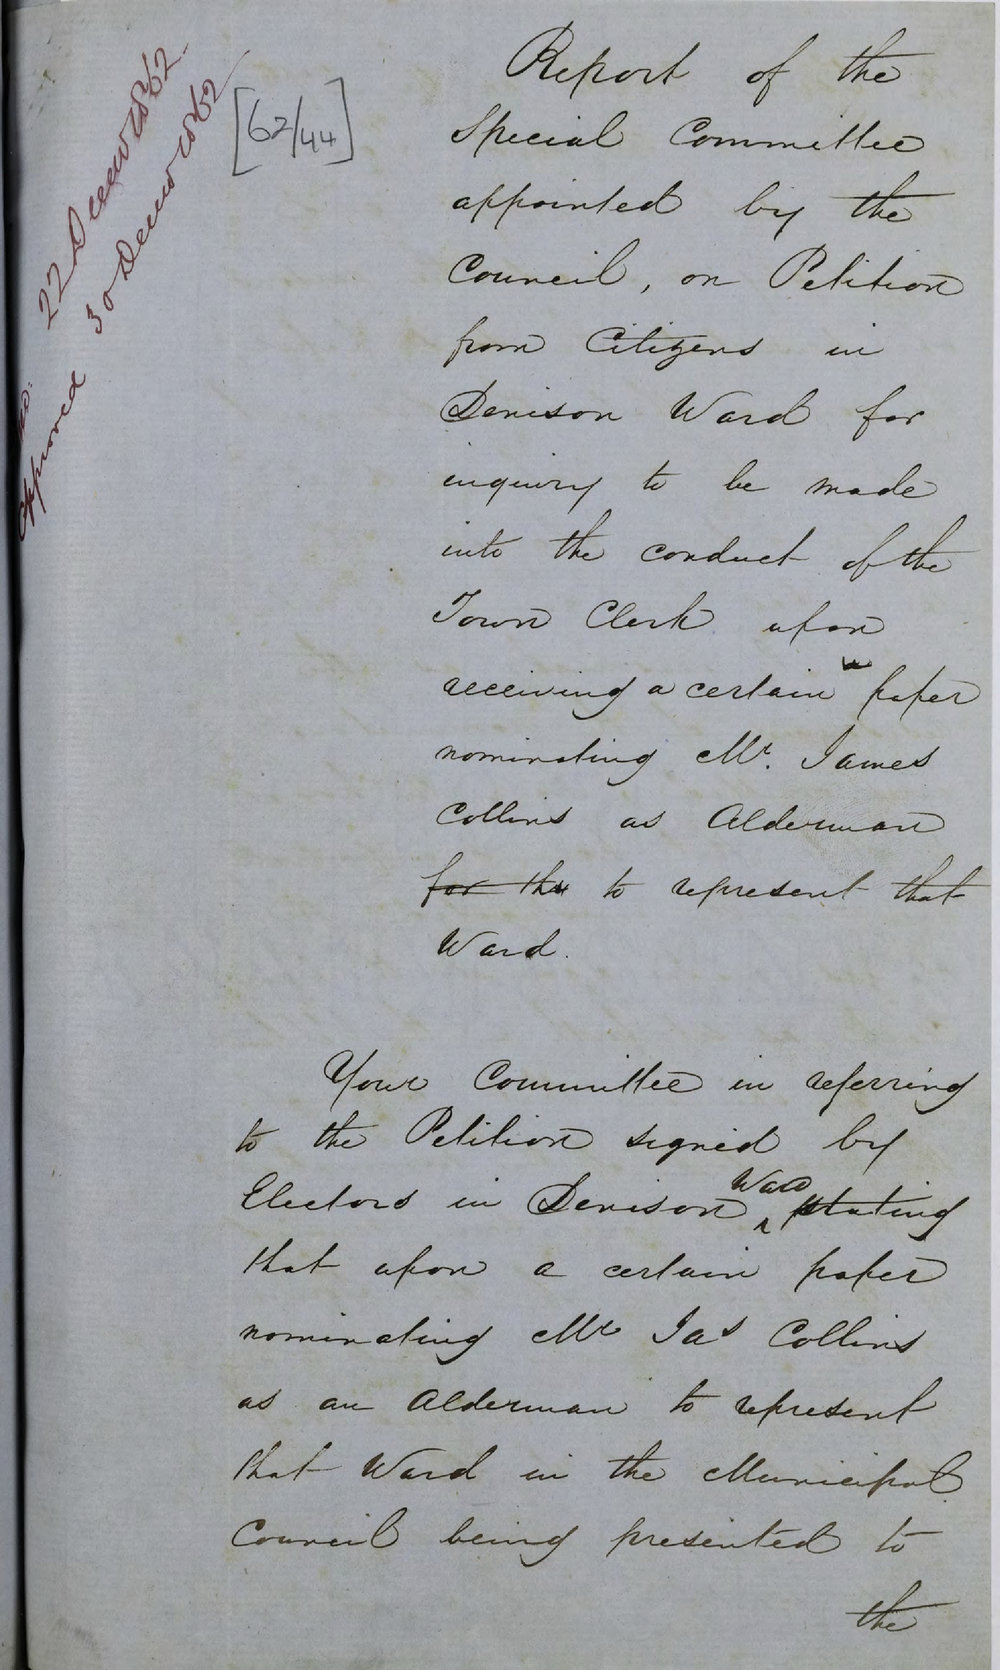 22 Decemr 1862
Approved 30 Decemr 1862
[62/44]
Report of the
Special Committee
appointed by the
Council, on Petition
from Citizens in
Denison Ward for
inquiry to be made
into the conduct of the
Town Clerk upon
receiving a certain paper
nominating Mr. James
Collins as Alderman
for the to represent that
Ward.
Your Committee in referring
to the Petition signed by
Electors in Denison Ward stating
that upon a certain paper
nominating Mr Jas Collins
as an Alderman to represent
that Ward in the Municipal
Council being presented to
the